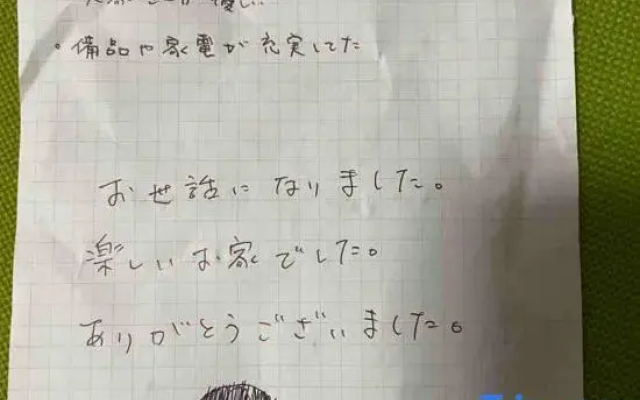 ・備品や家電が充実してた
お世話になりました。
楽しいお家でした。
ありがとうございました。